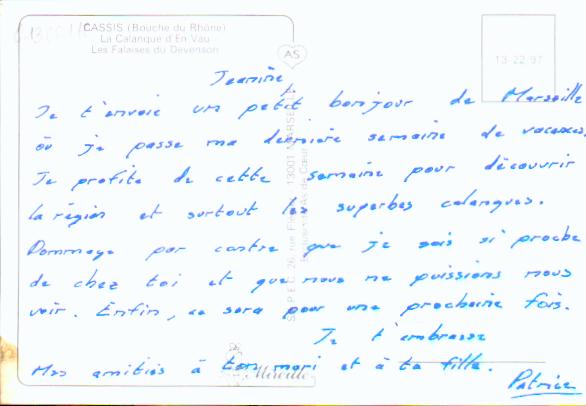 CASSIS (Bouche du Rhône)
La Calanque d'En Vau
Les Falaises du Devenson
AS
13-22-97
Jeanine,
Je t'envoie un petit bonjour de Marseille
où je passe ma dernière semaine de vacances.
Je profite de cette semaine pour découvrir
la région et surtout les superbes calanques.
Dommage par contre que je sois si proche
de chez toi et que nous ne puissions nous
voir. Enfin, ce sera pour une prochaine fois.
Je t'embrasse
Mes amitiés à ton mari et à ta fille.
Patrice
Mireille
13001 MARSEILLE